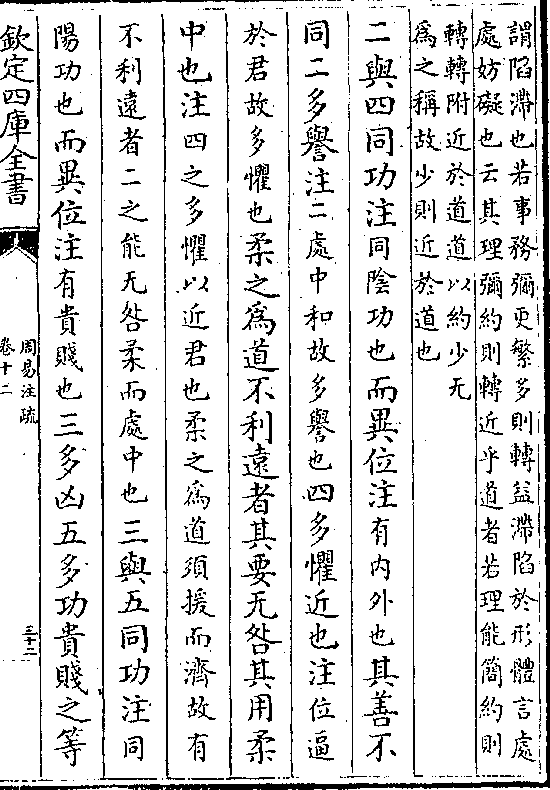 謂陷滯也若事務彌更繁多則轉益滯陷於形體言處
處妨礙也云其理彌約則轉近乎道者若理能簡約則
轉轉附近於道道以約少无
爲之稱故少則近於道也
二與四同功注同陰功也而異位注有內外也其善不
同二多譽注二處中和故多譽也四多懼近也注位逼
於君故多懼也柔之爲道不利遠者其要无咎其用柔
中也注四之多懼以近君也柔之爲道須援而濟故有
不利遠者二之能无咎柔而處中也三與五同功注同
陽功也而異位注有貴賤也三多凶五多功貴賤之等
欽定四庫全書
周易注疏
卷十二
三十二